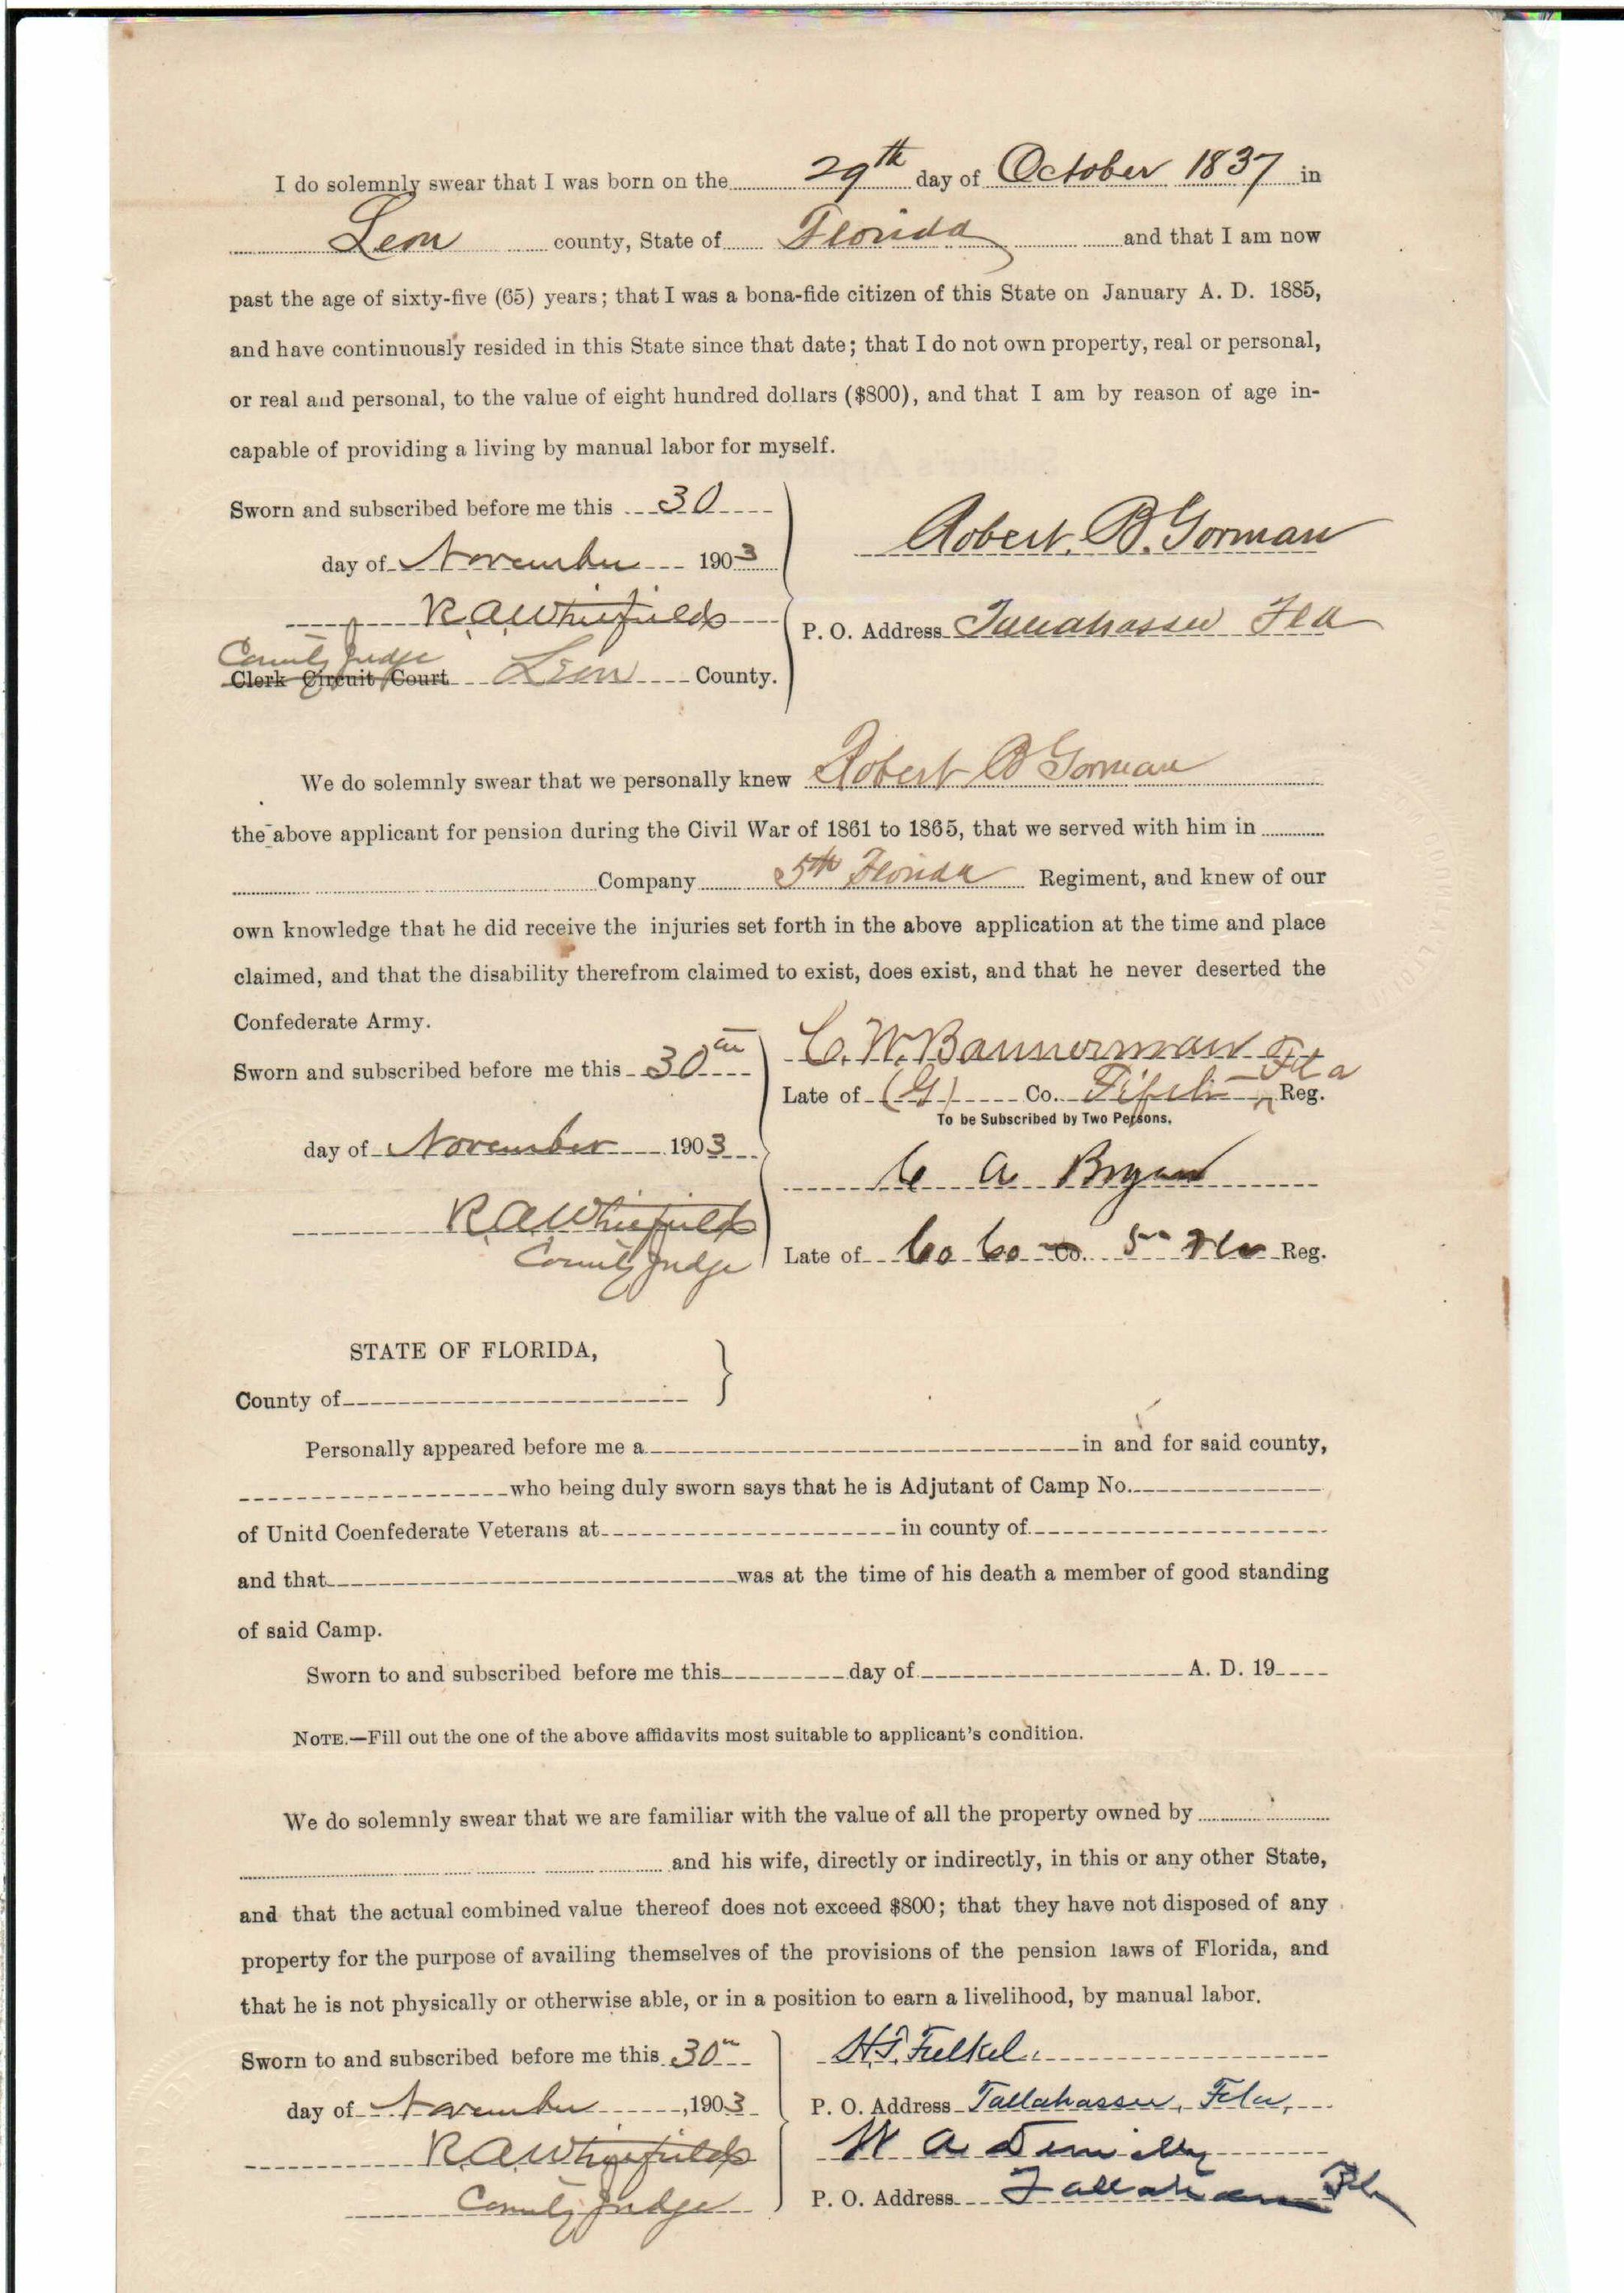 I do solemnly swear that I was born on the 29th day of October 1837 in
Leon county, State of Florida and that I am now
past the age of sixty-five (65) years; that I was a bona-fide citizen of this State on January A. D. 1885,
and have continuously resided in this State since that date; that I do not own property, real or personal,
or real and personal, to the value of eight hundred dollars ($800), and that I am by reason of age in-
capable of providing a living by manual labor for myself.
Sworn and subscribed before me this 30
day of November 1903
R.A. Whitfield
County Judge
Clerk Circuit Court Leon County.
Robert. B. Gorman
P. O. Address Tallahassee Fla
We do solemnly swear that we personally knew Robert B Gorman
the above applicant for pension during the Civil War of 1861 to 1865, that we served with him in
Company 5th Florida Regiment, and knew of our
own knowledge that he did receive the injuries set forth in the above application at the time and place
claimed, and that the disability therefrom claimed to exist, does exist, and that he never deserted the
Confederate Army.
Sworn and subscribed before me this 30th
day of November 1903
R.A. Whitfield
County Judge
C. W. Bannerman
Late of (G) Co. Fifth Fla Reg.
To be Subscribed by Two Persons.
C A Bryan
Late of Co. 5th Fla Reg.
STATE OF FLORIDA,
County of
Personally appeared before me a in and for said county,
who being duly sworn says that he is Adjutant of Camp No.
of Unitd Coenfederate Veterans at in county of
and that was at the time of his death a member of good standing
of said Camp.
Sworn to and subscribed before me this day of A. D. 19
NOTE.—Fill out the one of the above affidavits most suitable to applicant's condition.
We do solemnly swear that we are familiar with the value of all the property owned by
and his wife, directly or indirectly, in this or any other State,
and that the actual combined value thereof does not exceed $800; that they have not disposed of any
property for the purpose of availing themselves of the provisions of the pension laws of Florida, and
that he is not physically or otherwise able, or in a position to earn a livelihood, by manual labor.
Sworn to and subscribed before me this 30th
day of November, 1903
R.A. Whitfield
County Judge
H.T. Felkel.
P. O. Address Tallahassee, Fla,
W A Demilly
P. O. Address Tallahassee Fla